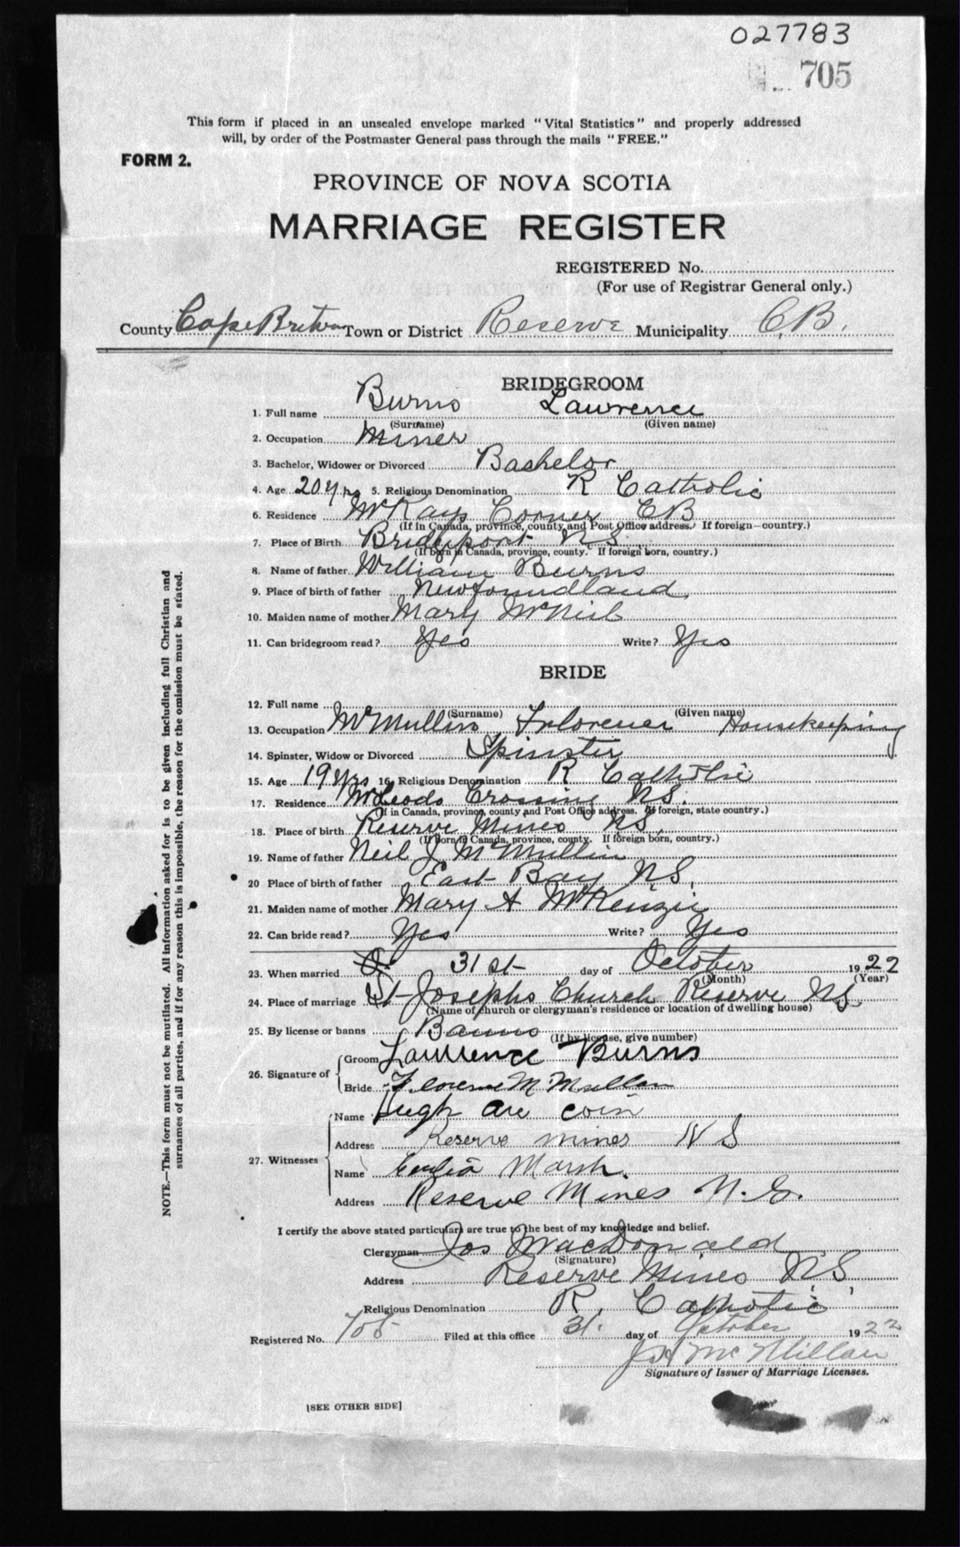 027783
705
This form if placed in an unsealed envelope marked "Vital Statistics" and properly addressed
will, by order of the Postmaster General pass through the mails "FREE."
FORM 2.
PROVINCE OF NOVA SCOTIA
MARRIAGE REGISTER
REGISTERED No.
(For use of Registrar General only.)
County Cape Breton Town or District Reserve Municipality C.B.
BRIDEGROOM
1. Full name Burns Lawrence
(Surname) (Given name)
2. Occupation Miner
3. Bachelor, Widower or Divorced Bachelor
4. Age 20 yrs 5. Religious Denomination R Catholic
6. Residence McKays Corner CB
(If in Canada, province, county and Post Office address. If foreign—country.)
7. Place of Birth Bridgeport N.S.
(If born in Canada, province, county. If foreign born, country.)
8. Name of father William Burns
9. Place of birth of father Newfoundland
10. Maiden name of mother Mary McNeil
11. Can bridegroom read? Yes Write? Yes
BRIDE
12. Full name McMullin Florence
(Surname) (Given name)
13. Occupation Housekeeping
14. Spinster, Widow or Divorced Spinster
15. Age 19 yrs 16. Religious Denomination R Catholic
17. Residence McLeods Crossing N.S.
(If in Canada, province, county and Post Office address. If foreign, state country.)
18. Place of birth Reserve Mines N.S.
(If born in Canada, province, county. If foreign born, country.)
19. Name of father Neil J McMullin
20 Place of birth of father East Bay N.S.
21. Maiden name of mother Mary A McKenzie
22. Can bride read? Yes Write? Yes
23. When married 31st day of October 1922
(Month) (Year)
24. Place of marriage St Josephs Church Reserve N.S.
(Name of church or clergyman's residence or location of dwelling house)
25. By license or banns Banns
(If by license, give number)
26. Signature of Groom Lawrence Burns
Bride Florence McMullan
27. Witnesses Name Hugh are coin
Address Reserve mines N S
Name Marsh.
Address Reserve Mines N.S.
I certify the above stated particulars are true to the best of my knowledge and belief.
Clergyman Jos MacDonald
(Signature)
Address Reserve Mines N.S.
Religious Denomination R. Catholic
Registered No. 705 Filed at this office 31. day of October 1922
McMillan
Signature of Issuer of Marriage Licenses.
[SEE OTHER SIDE]
NOTE.—This form must not be mutilated. All information asked for is to be given including full Christian and
surnames of all parties, and if for any reason this is impossible, the reason for the omission must be stated.